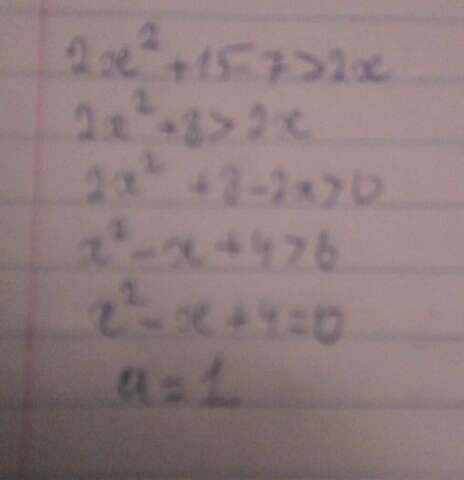 2x² + 15 - 7 > 2x
2x² + 8 > 2x
2x² + 8 - 2x > 0
x² - x + 4 > 6
x² - x + 4 = 0
a = 1